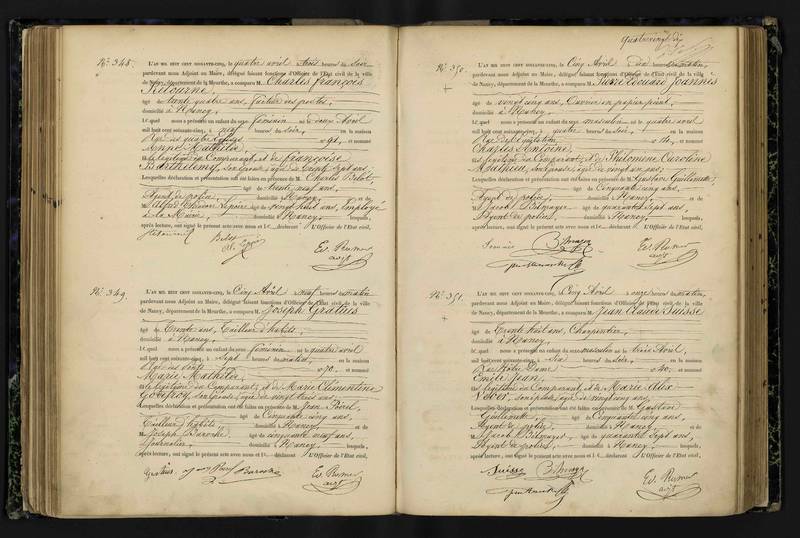 N.° 348.
L'AN MIL HUIT CENT SOIXANTE-CINQ, le quatre avril trois heures du soir
pardevant nous Adjoint au Maire, délégué faisant fonctions d'Officier de l'État civil de la ville
de Nancy, département de la Meurthe, a comparu M. Charles François
âgé de trente quatre ans, facteur des postes,
domicilié à Nancy,
lequel nous a présenté un enfant du sexe féminin né deux Avril
mil huit cent soixante-cinq, à neuf heures du soir, en la maison
Rue des quatre églises n° 91, et nommé
Anne Mathilde
et de Françoise
Barthélemy, son épouse, âgée de vingt sept ans;
Lesquelles déclaration et présentation ont été faites en présence de M. Charles Belot,
âgé de trente neuf ans,
Agent de police, domicilié à Nancy, et de
âgé de vingt huit ans, Employé
à la Mairie, domicilié à Nancy, lesquels,
après lecture, ont signé le présent acte avec nous et le déclarant L'Officier de l'État civil,
N.° 349.
L'AN MIL HUIT CENT SOIXANTE-CINQ, le Cinq Avril neuf heures du matin
pardevant nous Adjoint au Maire, délégué faisant fonctions d'Officier de l'État civil de la ville
de Nancy, département de la Meurthe, a comparu M. Joseph Gratius
âgé de Trente ans, Tailleur d'habits,
domicilié à Nancy,
lequel nous a présenté un enfant du sexe féminin né le quatre avril
mil huit cent soixante-cinq, à sept heures du matin, en la maison
n° 70, et nommé
Marie Mathilde,
et de Marie Clémentine
Godefroy, son épouse, âgée de vingt trois ans;
Lesquelles déclaration et présentation ont été faites en présence de M. Jean
âgé de Cinquante cinq ans,
Tailleur d'habits, domicilié à Nancy, et de
M. Joseph Baroche, âgé de cinquante neuf ans,
Journalier, domicilié à Nancy, lesquels,
après lecture, ont signé le présent acte avec nous et le déclarant L'Officier de l'État civil,
Gratius Baroche
quatrevingt dix
N.° 350.
L'AN MIL HUIT CENT SOIXANTE-CINQ, le Cinq Avril dix heures du matin,
pardevant nous Adjoint au Maire, délégué faisant fonctions d'Officier de l'État civil de la ville
de Nancy, département de la Meurthe, a comparu M. Pierre Edouard Joannès
âgé de vingt cinq ans, Ouvrier en papier peint,
domicilié à Nancy,
lequel nous a présenté un enfant du sexe masculin né le quatre avril
mil huit cent soixante-cinq, à quatre heures du soir, en la maison
n° 14, et nommé
Charles Antoine,
et de Philomène Caroline
Mathieu, son épouse, âgée de vingt un ans;
Lesquelles déclaration et présentation ont été faites en présence de M. Gustave Guillemette,
âgé de Cinquante cinq ans,
Agent de police, domicilié à Nancy, et de
M. Jacob âgé de quarante sept ans,
Agent de police, domicilié à Nancy, lesquels,
après lecture, ont signé le présent acte avec nous et le déclarant L'Officier de l'État civil,
N.° 351.
L'AN MIL HUIT CENT SOIXANTE-CINQ, le Cinq Avril onze heures du matin,
pardevant nous Adjoint au Maire, délégué faisant fonctions d'Officier de l'État civil de la ville
de Nancy, département de la Meurthe, a comparu M. Jean Claude Suisse
âgé de Trente huit ans, Charpentier,
domicilié à Nancy,
lequel nous a présenté un enfant du sexe masculin né le trois Avril,
mil huit cent soixante-cinq, à six heures du matin, en la maison
Rue Notre Dame n° 40, et nommé
Emile Jean,
et de Marie Alix
son épouse, âgée de vingt cinq ans,
Lesquelles déclaration et présentation ont été faites en présence de M. Gustave
Guillemette, âgé de Cinquante cinq ans,
Agent de police, domicilié à Nancy, et de
M. Jacob âgé de quarante sept ans,
Agent de police, domicilié à Nancy, lesquels,
après lecture, ont signé le présent acte avec nous et le déclarant L'Officier de l'État civil,
Suisse